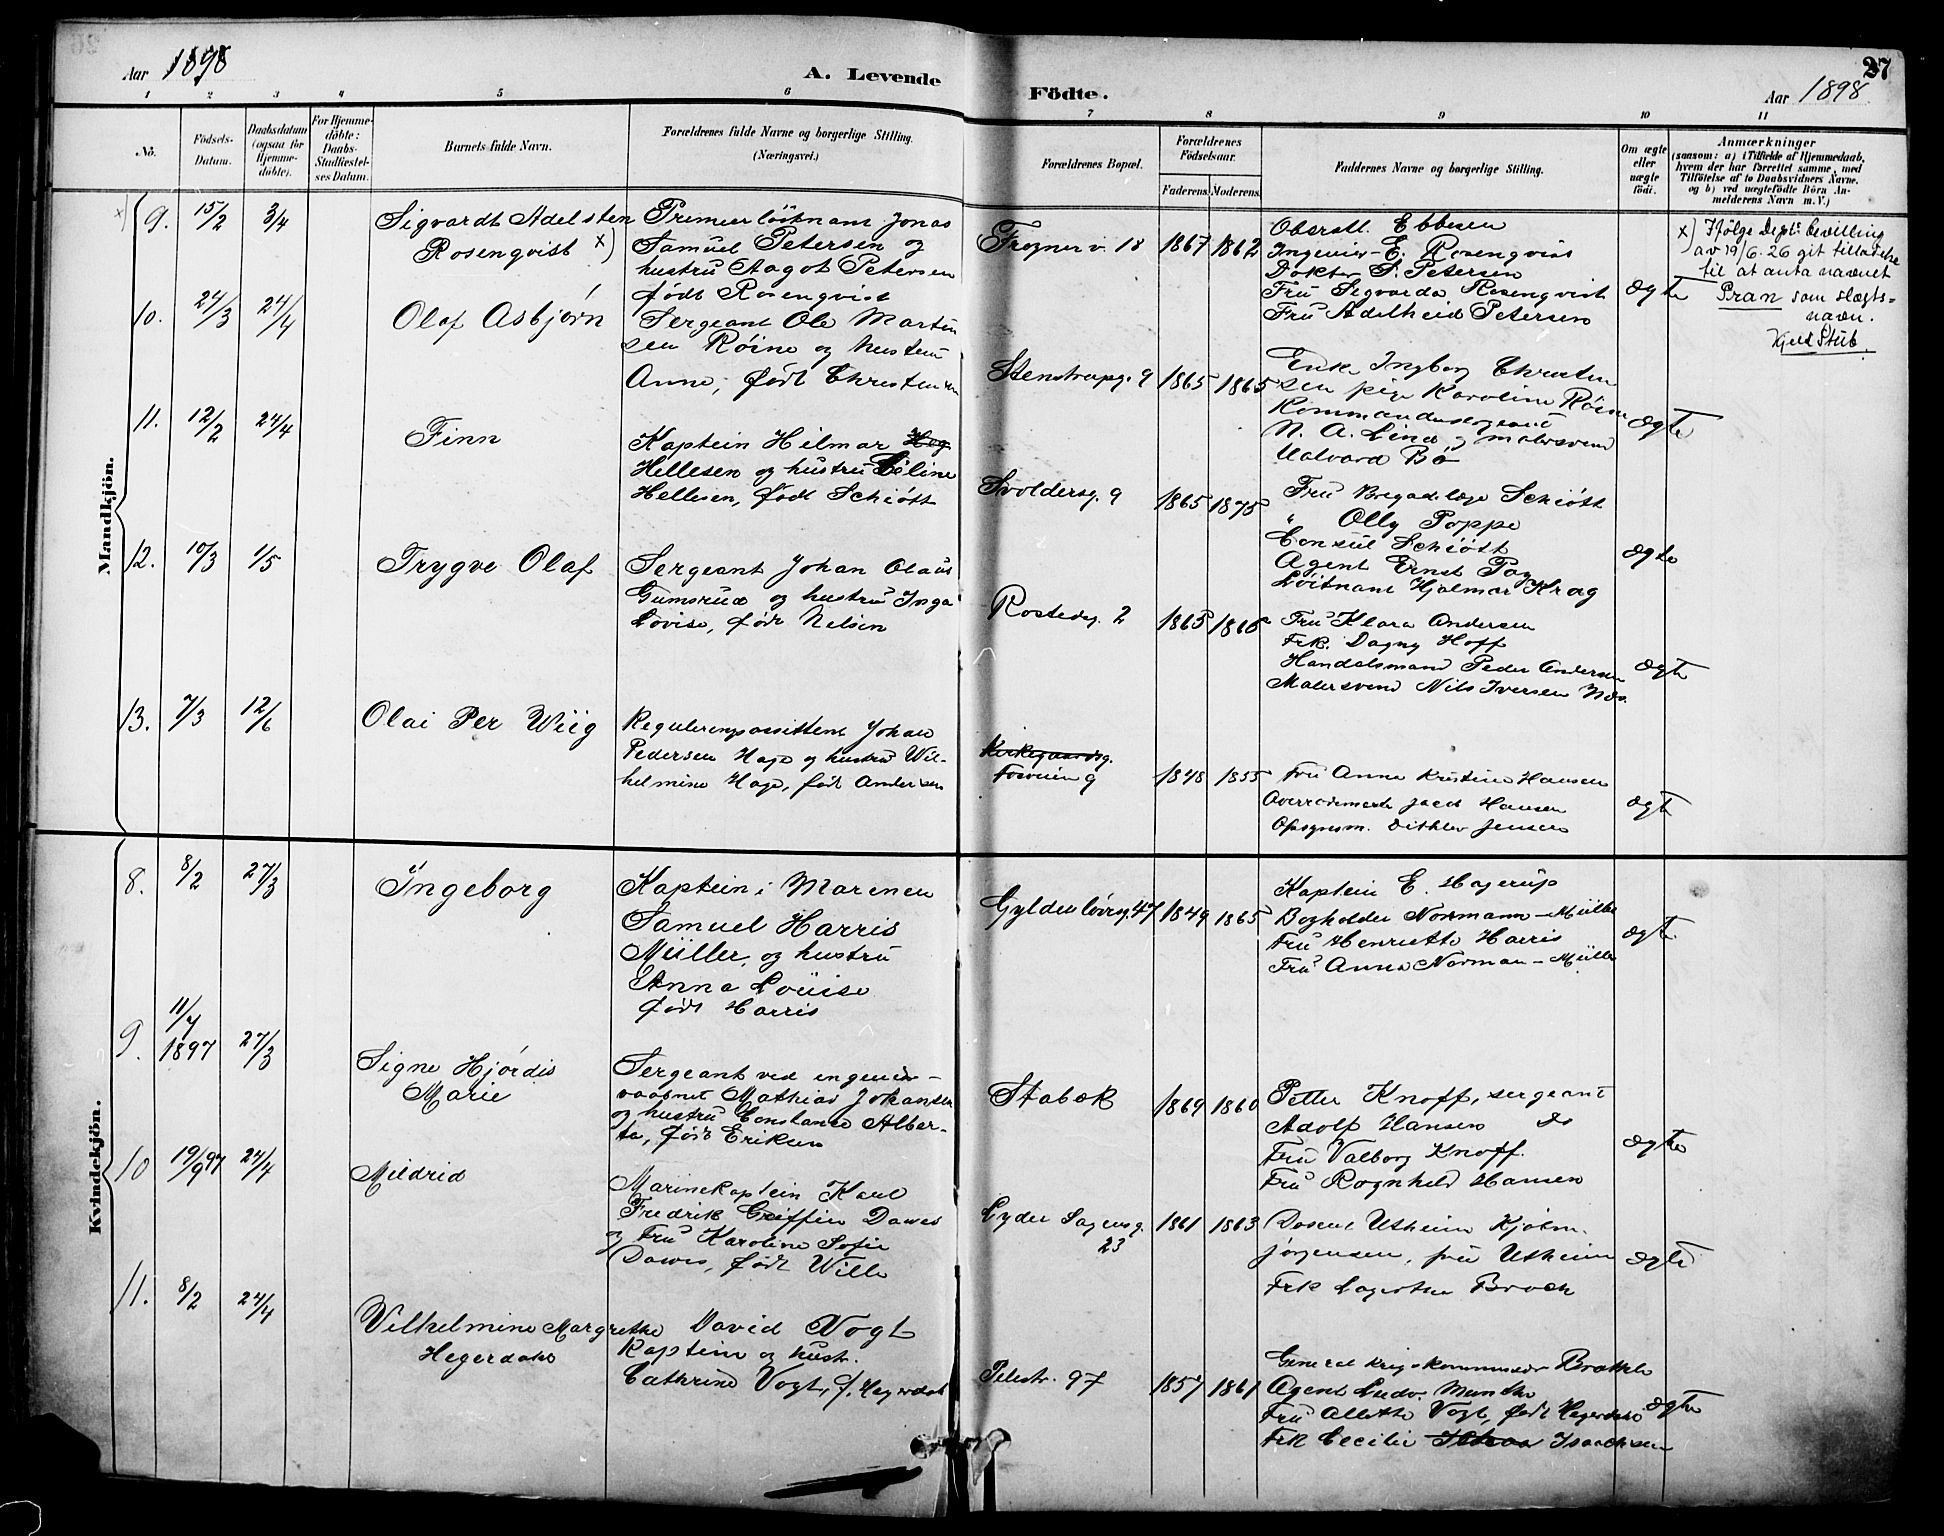 27
Aar 1898
A. Levende Födte.
Aar 1898
1 2 3 4 5 6 7 8 9 10 11
No.
Födsels-
Datum.
Daabsdatum
(ogsaa for
Hjemme-
döbte).
For Hjemme-
döbte:
Daabs-
Stadfæstel-
ses Datum.
Barnets fulde Navn.
Forældrenes fulde Navne og borgerlige Stilling.
(Næringsvei.)
Forældrenes Bopæl.
Forældrenes
Födselsaar.
Faderens. Moderens.
Faddernes Navne og borgerlige Stilling.
Om ægte
eller
uægte
födt.
Anmærkninger
(saasom: a) i Tilfælde af Hjemmedaab,
hvem der har forrettet samme, med
Tilföielse af to Daabsvidners Navne,
og b) ved uægtefödte Börn An-
melderens Navn m. V.)
Mandkjön.
x) 9. 15/2 3/4
Sigvardt Adelsten
Rosenqvist x)
Premierlöitnant Jonas
Samuel Petersen og
hustru Aagot Petersen
født Rosenqvist
Frognerv. 18 1867 1862
Oberstl. Ebbesen
Ingeniør E. Rosenqvist
Doktor S. Petersen
Fru Sigvarda Rosenqvist
Fru Adelheid Petersen
ægte
x) Ifölge Dept: bevilling
av 19/6. 26 git tilladelse
til at anta navnet
Pran som slægts=
navn.
Kjeld Stub.
10. 24/3 24/4
Olaf Asbjørn
Sergeant Ole Martin
sen Röine og hustru
Anne, født Christensen
Stenstrupg. 9 1865 1865
Enke Ingborg Christen
sen pige Karoline Röine
Kommandersergeant
N. A. Lind og malersvend
Halvard Bö
ægte
11. 12/2 24/4
Finn
Kaptein Hilmar Heg
Hellesen og hustru Céline
Hellesen, født Schiött
Svoldersg. 9 1865 1875
Fru Brigadelæge Schiött
" Olly Poppe
Consul Schiött
Agent Ernst Pay
Löitnant Hjalmar Krag
ægte
12. 10/3 1/5
Trygve Olaf
Sergeant Johan Olaus
Gumsrud og hustru Inga
Lovise, født Nelsen
Rostedsg. 2 1865 1865
Fru Klara Andersen
Frk. Dagny Hoff
Handelsmand Peder Andersen
Malersvend Nils Iversen
ægte
13. 7/3 12/6
Olai Per Wiig
Reguleringsassistent Johan
Pedersen Hage og hustru Wil-
helmine Hage, født Andersen
Kirkegaardsg.
Fosveien 9 1848 1855
Fru Anna Kristine Hansen
Jacob Hansen
Opsynsm. Dithlev Jensen
ægte
Kvindekjön.
8. 8/2 27/3
Ingeborg
Kaptein i Marinen
Samuel Harris
Müller, og hustru
Anna Louise
født Harris
Gyldenløvesg. 47 1849 1865
Kaptein E. Hagerup
Bogholder Normann-Müller
Fru Henriette Harris
Fru Anna Norman-Müller
ægte
9. 11/7
1897 27/3
Signe Hjördis
Marie
Sergeant ved ingeniör-
vaabnet Mathias Johansen
og hustru Constance Alber-
ta, født Eriksen
Stabæk 1869 1860
Petter Knoff, sergeant
Adolf Hansen do
Fru Valborg Knoff.
Fru Ragnhild Hansen
ægte
10 19/9 97 24/4
Mildrid
Marinekaptein Karl
Fredrik Griffin Dawes
og Fru Karoline Sofie
Dawes, født Wille
Lyder Sagensg.
23
1861 1863
Docent Utheim
Jørgensen, fru Utheim
Frk Lagertha Broch
ægte
11. 8/2 24/4
Vilhelmine Margrethe
Hegerdahl
David Vogt
Kaptein og hustr.
Cathrine Vogt, f. Hegerdahl
Pilestr. 97 1857 1861
General krigskommissær Brathle
Agent Ludv. Munthe
Fru Alette Vogt, født Hegerdahl
Frk Cecilie Isachsen
ægte